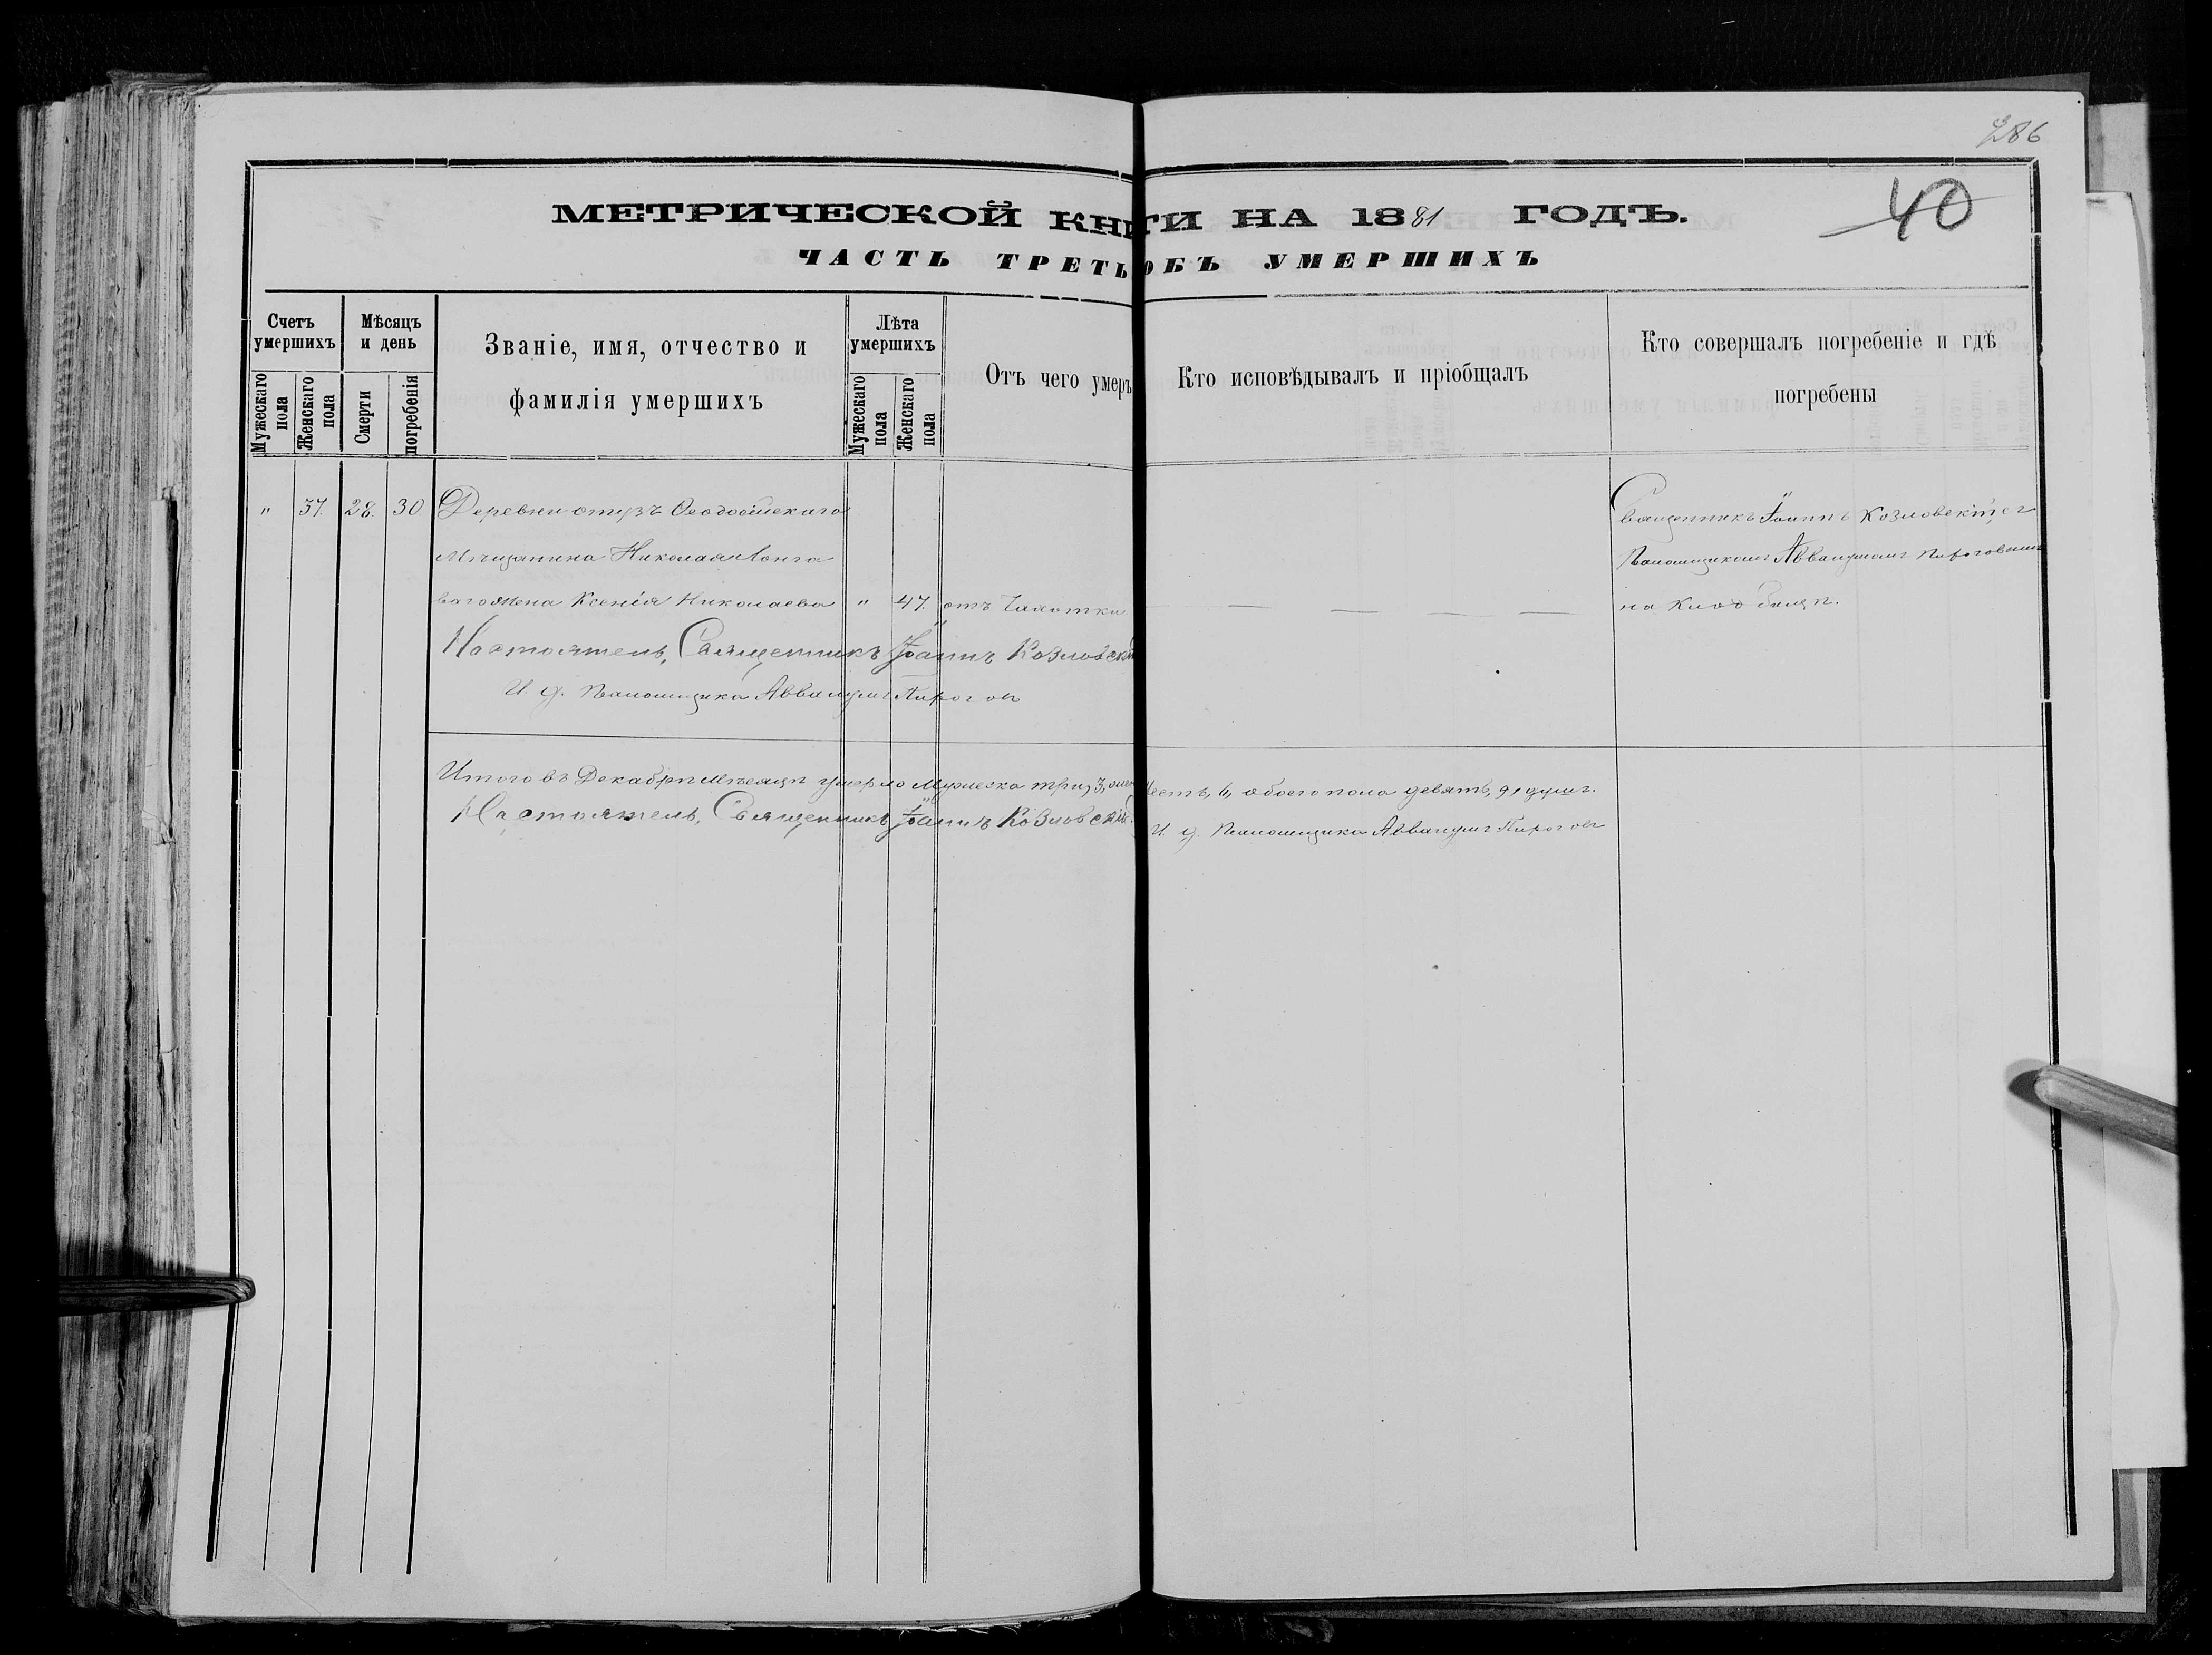 286
40
МЕТРИЧЕСКОЙ КНИГИ НА 1881 ГОДЪ.
ЧАСТЬ ТРЕТЬ ОБЪ УМЕРШИХЪ
Счетъ умершихъ
Мѣсяцъ и день
Званіе, имя, отчество и фамилія умершихъ
Лѣта умершихъ
Отъ чего умеръ
Кто исповѣдывалъ и пріобщалъ
Кто совершалъ погребеніе и гдѣ погребены
Мужескаго пола
Женскаго пола
Смерти
погребенія
Мужескаго пола
Женскаго пола
" 37. 28. 30 Деревни Ѳеодосійскаго
Мѣщанина Николая
жена Ксенія Николаева " 47. отъ Чахотки
Священникъ Іоаннъ Козловскій съ
Паномщикомъ Аввакумомъ Пироговымъ
на кладбищѣ.
Настоятель, Священникъ Іоаннъ Козловскій
И д. Паномщика Аввакумъ Пироговъ
Итого въ Декабрѣ Мѣсяцѣ умерло Мужеска три, 3, шесть, 6, обоего пола девять, 9, душъ.
Настоятель, Священникъ Іоаннъ Козловскій.
И. д. Паномщика Аввакумъ Пироговъ